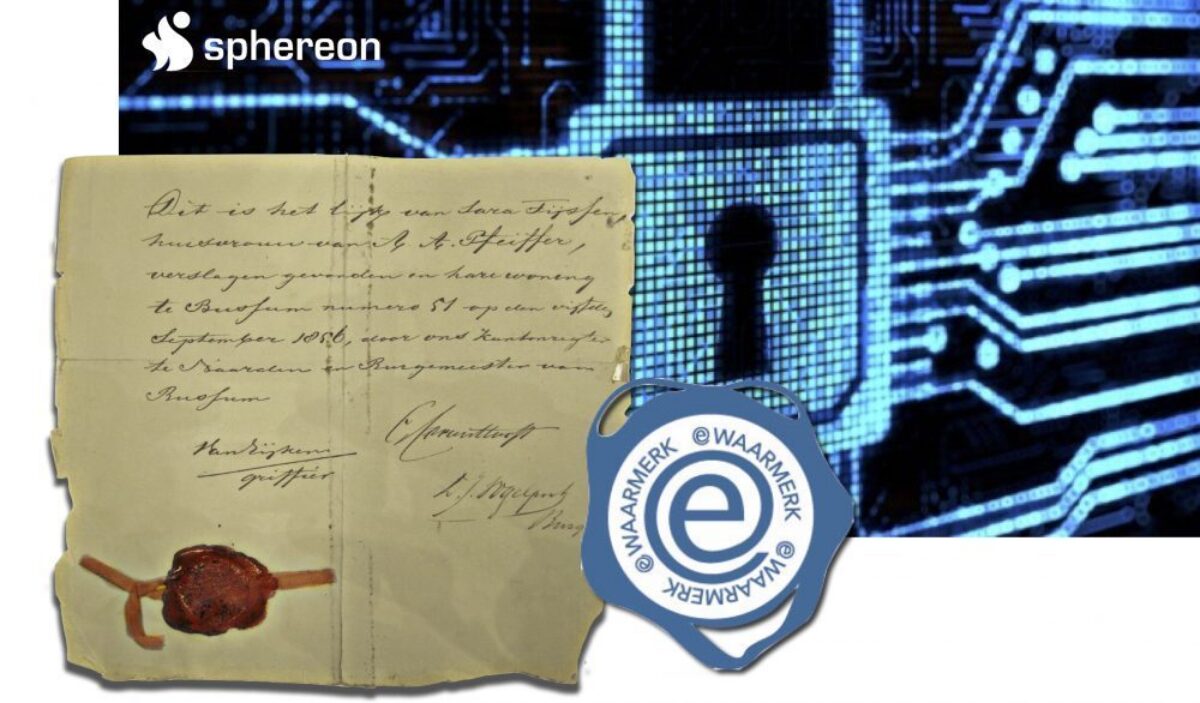 sphereon
Dit is het lijk van Sara Tijssen,
huisvrouw van A. A. Pfeiffer,
verslagen gevonden in hare woning
te Bussum numero 51 op den vijfden
September 1856, door ons kantonregter
te Naarden en Burgemeester van
Bussum
griffier
Burg
eWAARMERK eWAARMERK eWAARMERK
e